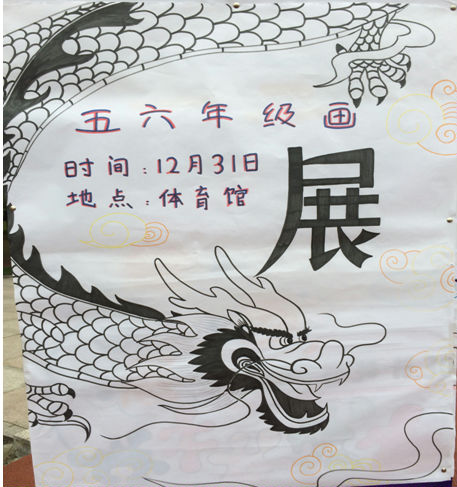 五六年级画
展
时间:12月31日
地点:体育馆